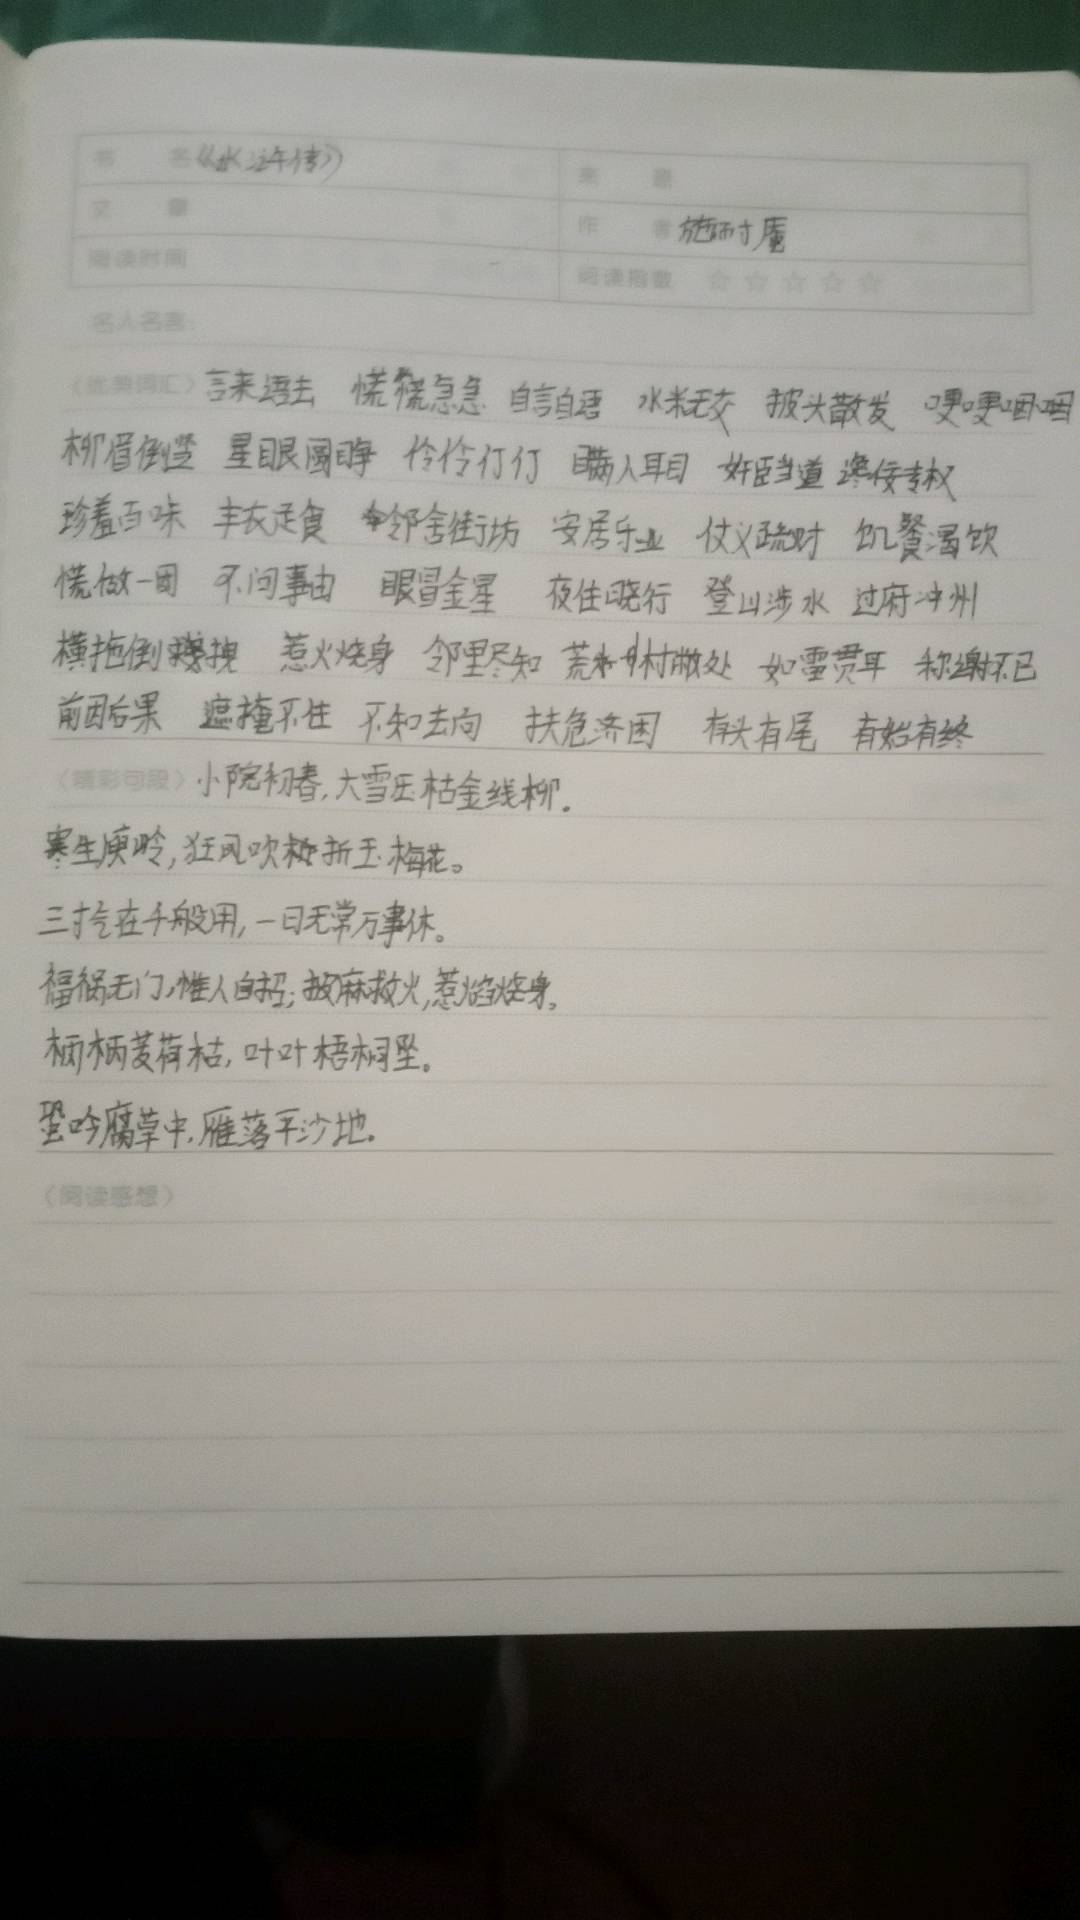 书 名《水浒传》 来 源
文 章 作 者 施耐庵
阅读时间 阅读指数 ☆☆☆☆☆
名人名言:
(优美词汇) 言来语去 慌慌急急 自言自语 水米无交 披头散发 哽哽咽咽
柳眉倒竖 星眼圆睁 伶伶仃仃 瞒人耳目 奸臣当道 谗佞专权
珍羞百味 丰衣足食 邻舍街坊 安居乐业 仗义疏财 饥餐渴饮
慌做一团 不问事由 眼冒金星 夜住晓行 登山涉水 过府冲州
横拖倒拽 惹火烧身 邻里尽知 荒村敝处 如雷贯耳 称谢不已
前因后果 遮掩不住 不知去向 扶危济困 有头有尾 有始有终
(精彩句段) 小院初春,大雪压枯金线柳。
寒生庾岭,狂风吹折玉梅花。
三寸气在千般用,一日无常万事休。
福祸无门,惟人自招;披麻救火,惹焰烧身。
柄柄芰荷枯,叶叶梧桐坠。
蛩吟腐草中,雁落平沙地。
(阅读感想)